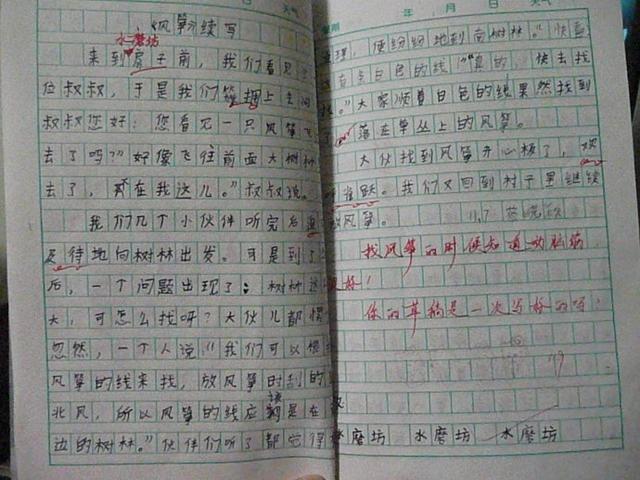 《风筝》续写
水磨坊
来到房子前，我们看见
位叔叔，于是我们拥上去问
叔叔您好：您看见一只风筝飞
去了吗？”好像飞往前面大树林
去了，不在我这儿。”叔叔说。
我们几个小伙伴听完后迫
及待地向树林出发。可是到了
后，一个问题出现了：树林这
大，可怎么找呀？大伙儿都
忽然，一个人说“我们可以
风筝的线来找，放风筝时刮的
北风，所以风筝的线应该是在
边的树林。”伙伴们听了都觉得
年 月 日 天气
理，便纷纷地到南树林。“快看
有条白色的线！”“真的，快去找
。”大家顺着白色的线果然找到
落在草丛上的风筝。
大伙找到风筝开心极了，欢
雀跃。我们又回到村子里继续
放风筝。
11.7
找风筝的时候知道动脑筋，
真好！
你的草稿是一次写好的吗？
水磨坊 水磨坊 水磨坊